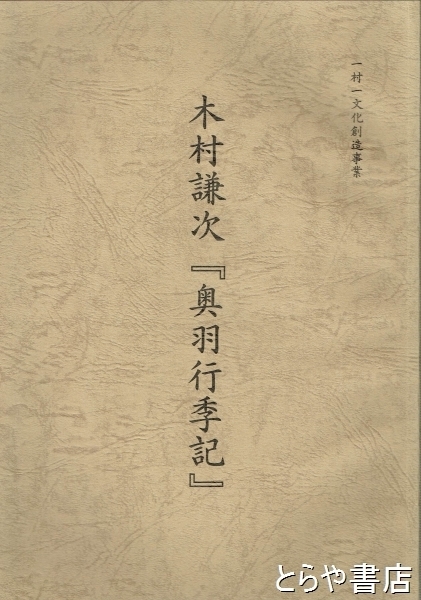 一村一文化創造事業
木村謙次『奥羽行季記』
とらや書店